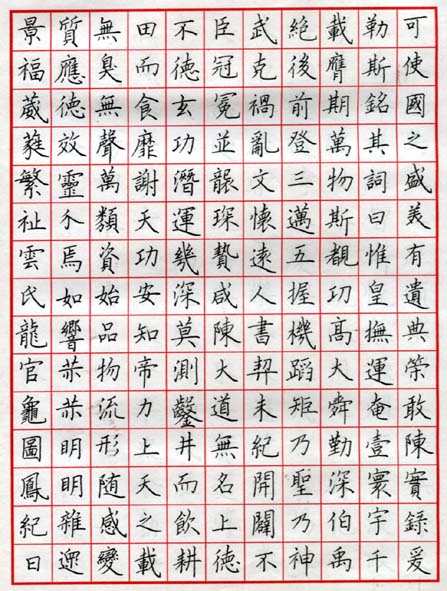 可使國之盛美有遺典榮敢陳實録爰
勒斯銘其詞曰惟皇撫運奄壹寰宇千
載膺期萬物斯覩功高大舜勤深伯禹
絶後前登三邁五握機蹈矩乃聖乃神
武克禍亂文懷遠人書契未紀開闢不
臣冠冕並襲琛贄咸陳大道無名上徳
不徳玄功潛運幾深莫測鑿井而飲耕
田而食靡謝天功安知帝力上天之載
無臭無聲萬類資始品物流形随感變
質應徳效靈介焉如響赫赫明明雜遝
景福葳蕤繁祉雲氏龍官龜圖鳳紀日